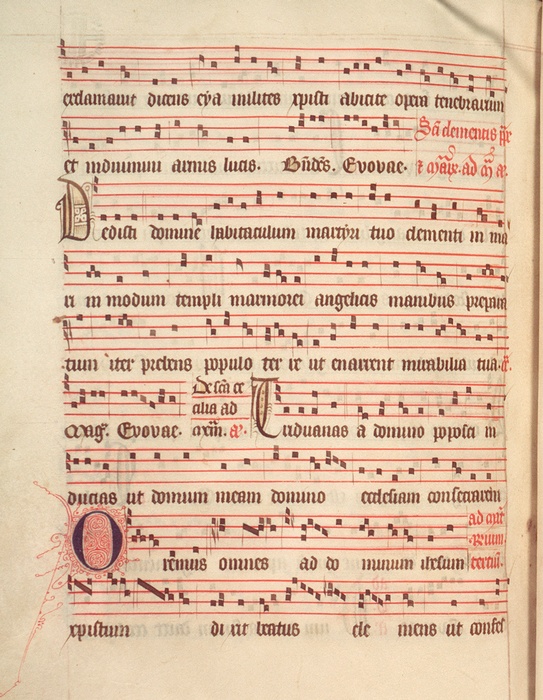 exclamavit dicens eya milites xpisti abicite opera tenebrarum
et induimini armis lucis. Evovae. Sancti clementis
Dedisti domine habitaculum martyri tuo clementi in ma
ri in modum templi marmorei angelicis manibus prepara
tum iter prebens populo ter re ut enarrent mirabilia tua.
Mag. Evovae. De sca ce
cilia ad
Triduanas a domino poposci in
ducias ut domum meam domino ecclesiam consecrarem
Oremus omnes ad do minum ihesum
xpistum dixit beatus cle mens ut confes